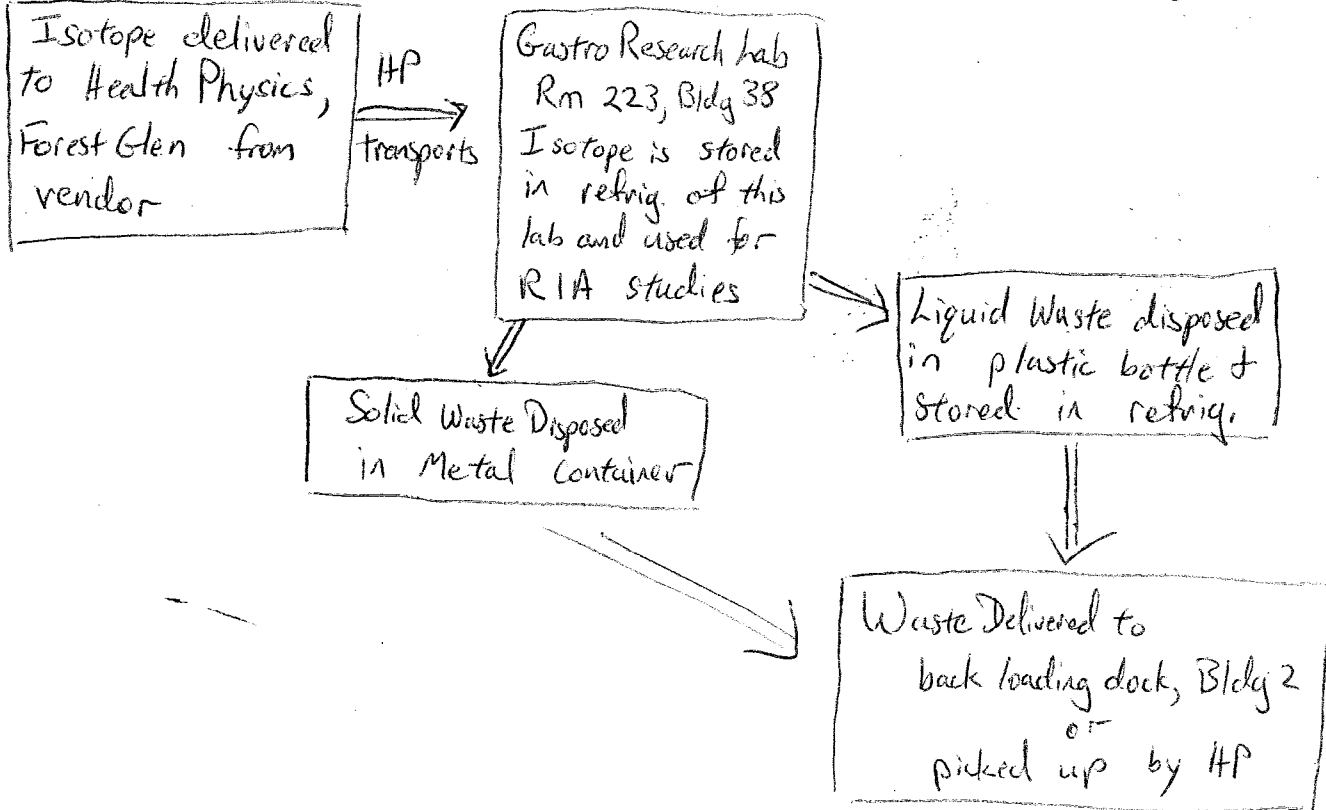 Isotope delivered
to Health Physics,
Forest Glen from
vendor
HP
transports
Gastro Research Lab
Rm 223, Bldg 38
Isotope is stored
in refrig. of this
lab and used for
RIA studies
Liquid Waste disposed
in plastic bottle &
stored in refrig.
Solid Waste Disposed
in Metal Container
Waste Delivered to
back loading dock, Bldg 2
or
picked up by HP